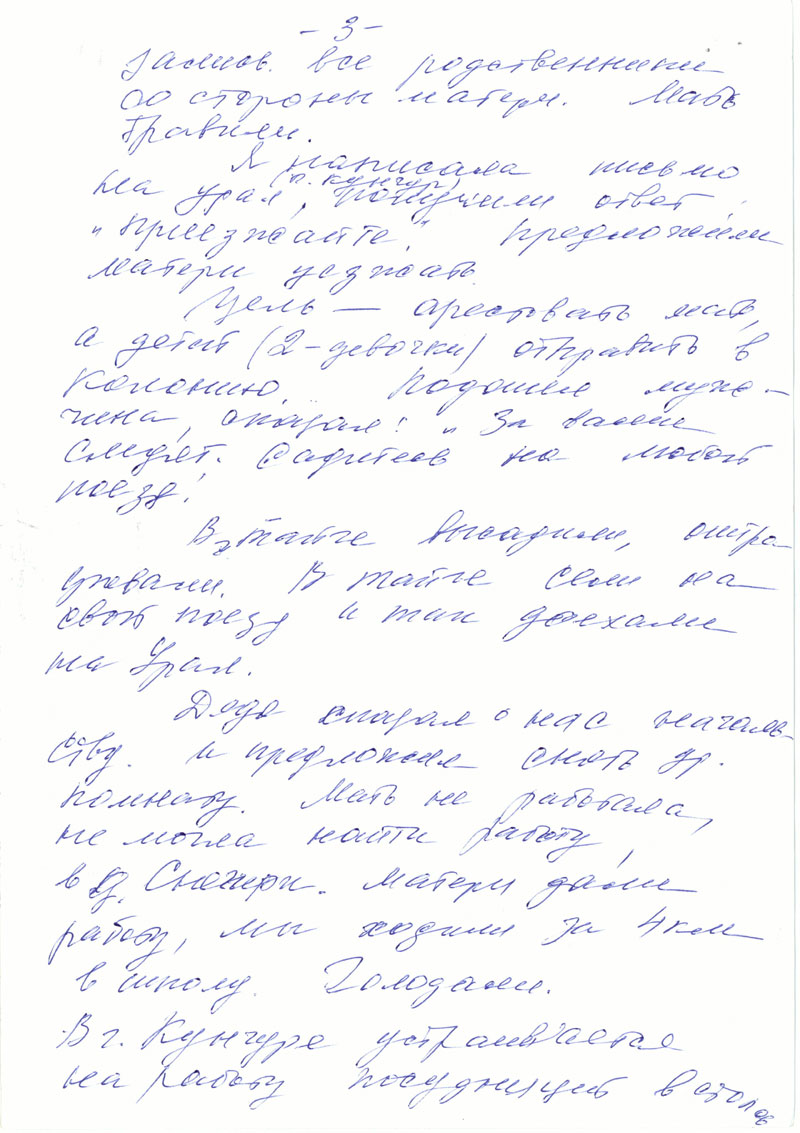 - 3 -
занись. все родственники
со стороны матери. Мать
травили.
Я написала письмо
на Урал (п. Кунгур), получили ответ
„приезжайте." Предложили
матери уезжать.
Цель — арестовать мать,
а детей (2-девочки) отправить в
колонию. Подошел муж-
чина, сказал: „За вами
следят. Садитесь на любой
поезд!
В тайге высадили, оштра-
фовали. В тайге сели на
свой поезд и так доехали
на Урал.
Дядя сказал о нас началь-
ству. и предложил снять др.
комнату. Мать не работала,
не могла найти работу,
в д. Матери дали
работу, мы ходили за 4 км
в школу. Голодали.
В г. Кунгуре устраивается
на работу посудницей в столов